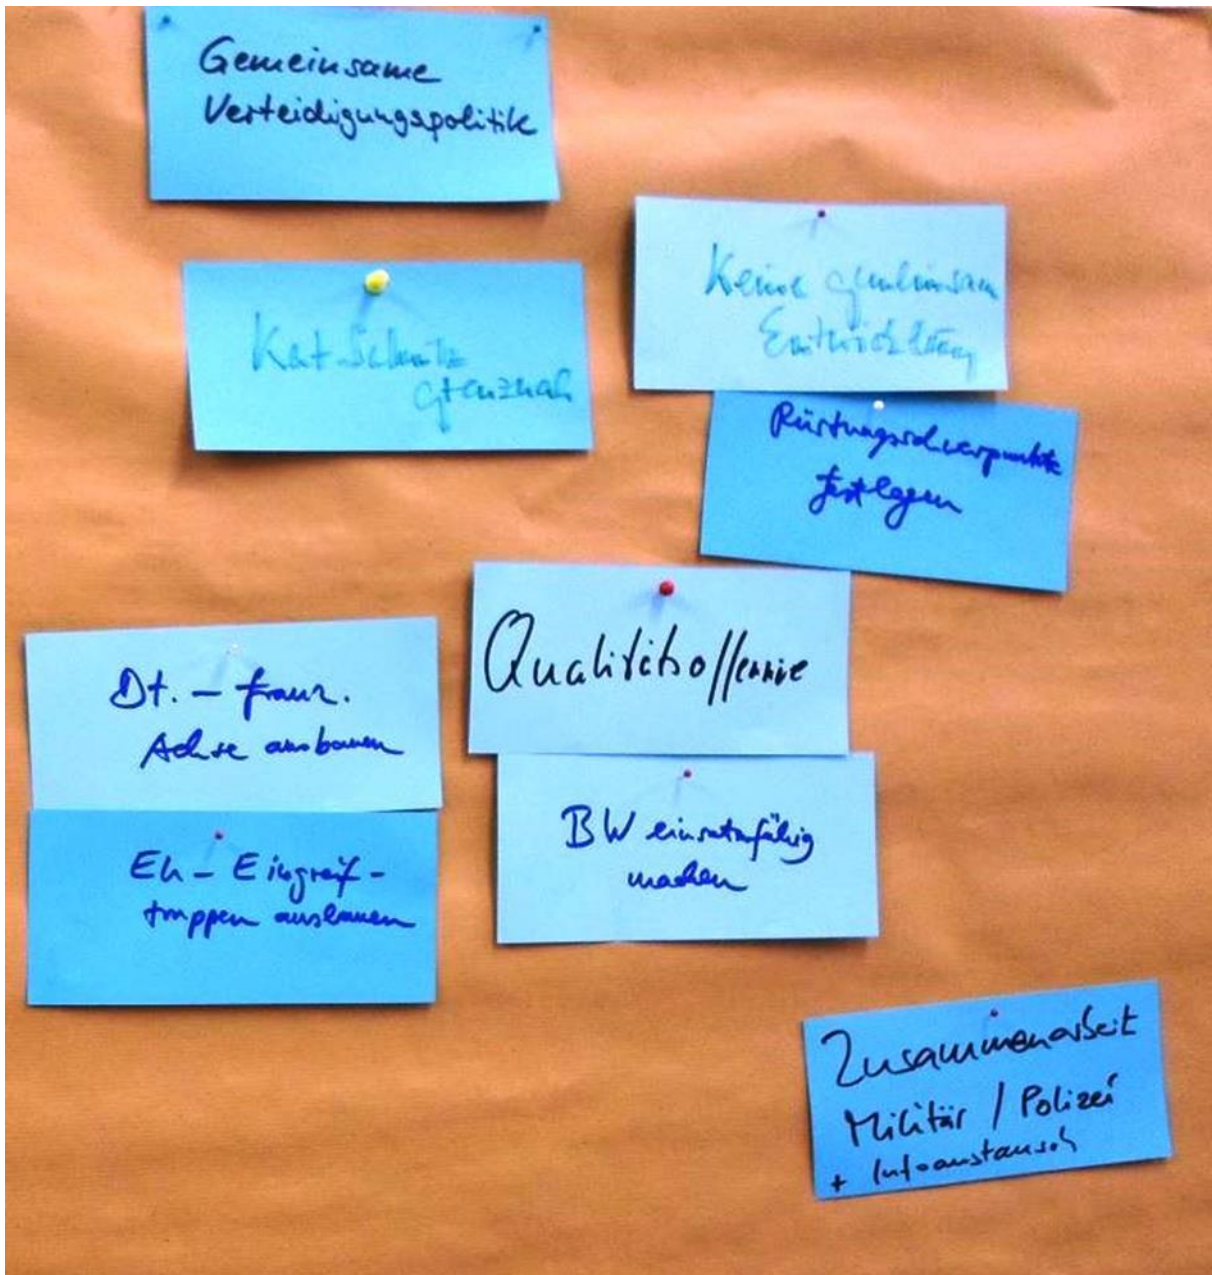 Gemeinsame
Verteidigungspolitik
Keine gemeinsam
Entwicklung
Kat Schutz
grenznah
Rüstungsschwerpunkte
festlegen
Qualitätsoffensive
Dt. - franz.
Achse ausbauen
BW einsatzfähig
machen
EU - Eingreif -
truppen ausbauen
Zusammenarbeit
Militär / Polizei
+ Infoaustausch